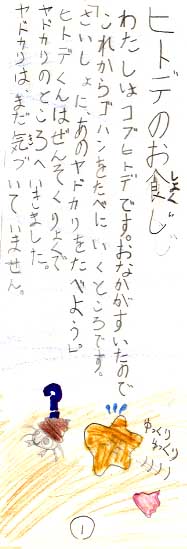 ヒトデのお食じ
しょく
わたしはコブヒトデです。おなかがすいたので
これからゴハンをたべにいくところです。
「さいしょに、あのヤドカリをたべよう」。
ヒトデくんはぜんそくりょくで
ヤドカリのところへいきました。
ヤドカリはまだ気づいていません。
?
ゆっくり
ゆっくり
1